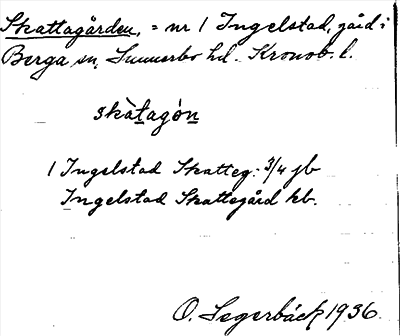 Skattagården, = nr 1 Ingelstad, gård i
Berga sn, Sunnerbo hd. Kronob. l.
skàtagón
1 Ingelstad Skatteg. 3/4 jb
Ingelstad Skattegård kb.
O. Segerbäck 1936.